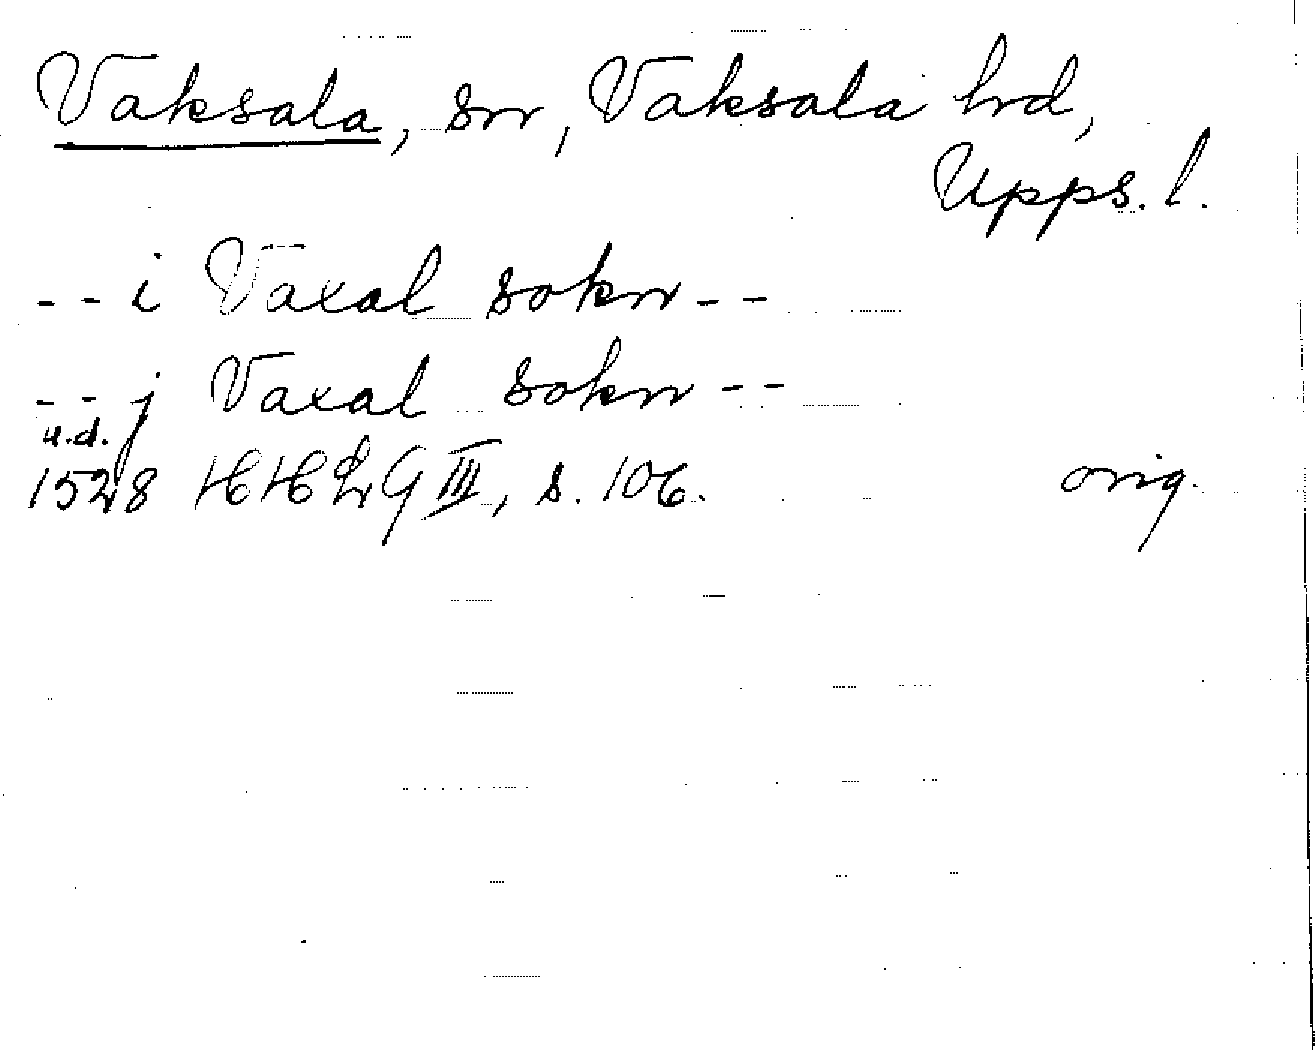 Vaksala, sn, Vaksala hd,
Upps. l.
-- i Vaxal sokn --
-- j Vaxal sokn --
u.d.
1528 HHLG III, s. 106. orig.